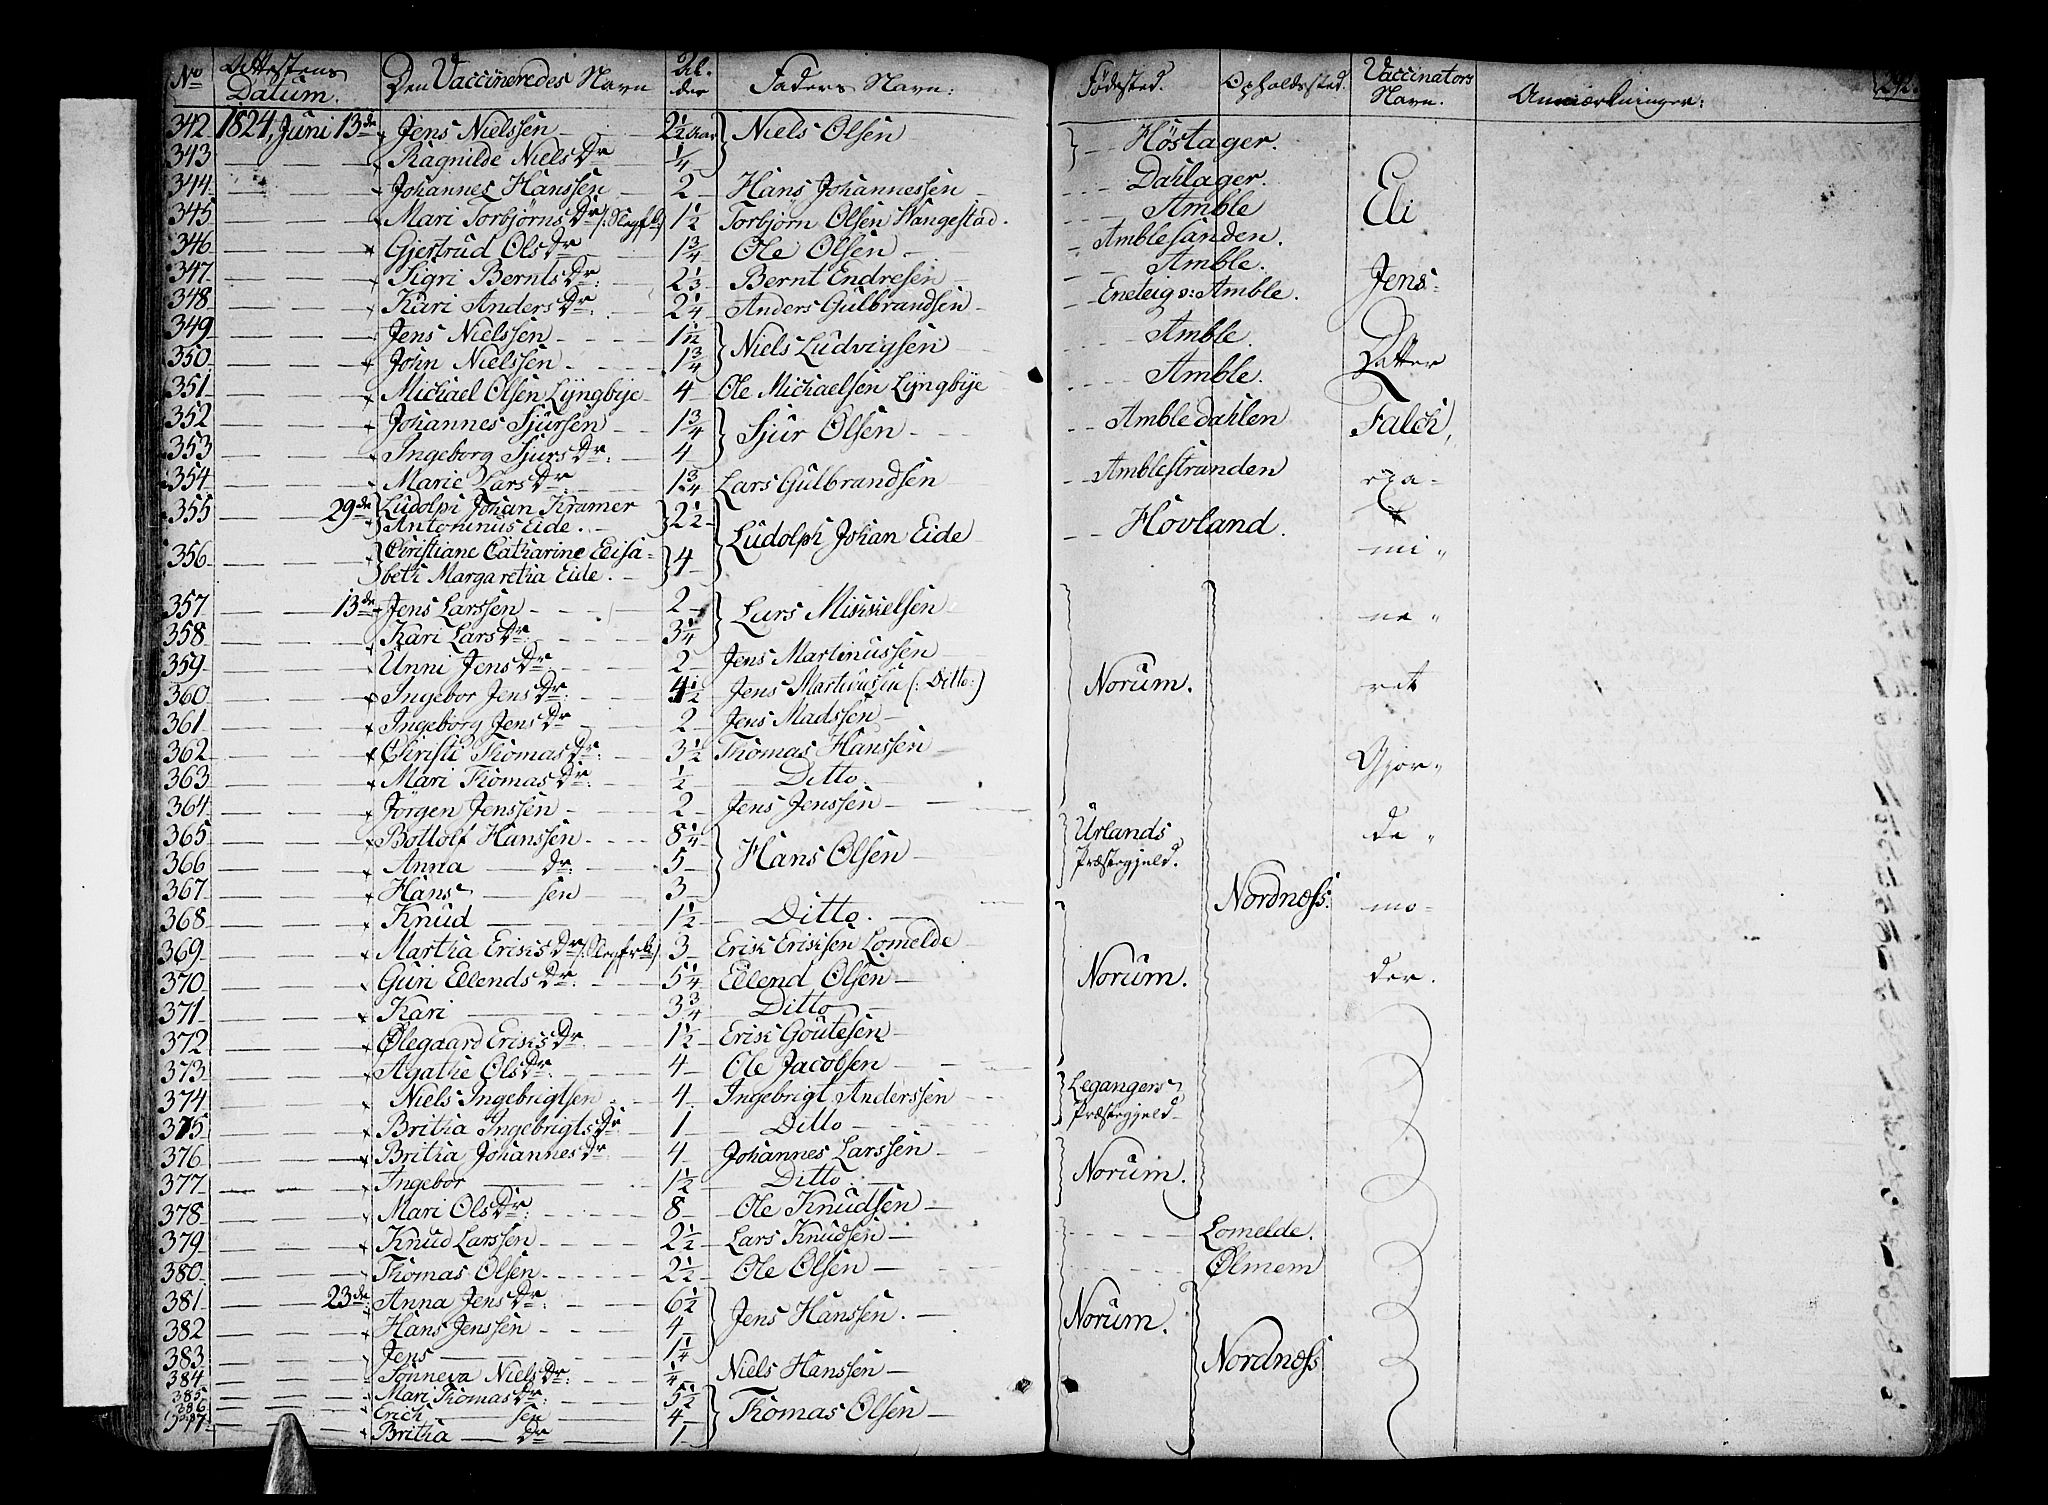 No Attestens Datum. Den Vaccineredes Navn Alder Faders Navn: Fødested. Opholdssted. Vaccinators Navn. Anmærkninger: 292.
342 1824, Juni 13de Jens Nielssen 2½ Aar } Niels Olsen } Höstager.
343 — — — Ragnilde Niels Dr ¼
344 — — — Johannes Hanssen — 2 — Hans Johannessen — Dahlager. Eli
345 — — — Mari Torbjörns Dr 1½ Torbjörn Olsen Hangestad. Amble
346 — — — Gjertrud Ols Dr 1¾ Ole Olsen Amblesanden.
347 — — — Sigri Bernts Dr: 2⅓ Bernt Endresen Amble. Jens-
348 — — — Kari Anders Dr: 2¼ Anders Gulbrandsen Eneteig v: Amble.
349 — — — Jens Nielssen 1½ } Niels Ludvigsen Amble. Datter
350 — — — John Nielssen 1¾ Amble.
351 — — — Michael Olsen Lÿngbÿe 4 — Ole Michaelsen Lÿngbÿe
352 — — — Johannes Sjursen 1¾ } Sjur Olsen — Ambledahlen Falch,
353 — — — Ingeborg Sjurs Dr: 4
354 — — — Marie Lars Dr 1¾ Lars Gulbrandsen Amblestranden exa-
355 — 29de { Ludolph Johan Kramer
Antoninus Eide. } 2½ } Ludolph Johan Eide Hovland. mi-
356 — — { Christiane Catharine Elisa-
beth Margaretha Eide. } 4
357 — 13de Jens Larssen 2 } Lars Mikkelsen Norum. ne-
358 — — — Kari Lars Dr: 3¼
359 — — — Unni Jens Dr: 2 Jens Martinussen
360 — — — Ingebor Jens Dr: 4½ Jens Martinussen (: Ditto:) ret
361 — — — Ingeborg Jens Dr 2 Jens Madssen
362 — — — Christi Thomas Dr: 3½ Thomas Hanssen Gjor-
363 — — — Mari Thomas Dr: ½ — Ditto.
364 — — — Jörgen Jenssen 2 — Jens Jenssen
365 — — — Bottolf Hanssen 8¼ } Hans Olsen — Urlands Præstegjeld. de-
366 — — — Anna — dr: 5
367 — — — Hans — sen 3 Nordnæss:
368 — — — Knud — 1½ — Ditto. mo-
369 — — — Martha Eriks Dr 3 — Erik Eriksen Lomelde Norum.
370 — — — Guri Ellends Dr: 5¼ Ellend Olsen der.
371 — — — Kari — 3¾ Ditto
372 — — — Ølegaard Eriks Dr. 1½ Erik Goutesen
373 — — — Agathe Ols Dr: 4 — Ole Jacobsen
374 — — — Niels Ingebrigtsen 4 — Ingebrigt Anderssen Legangers Præstegjeld
375 — — — Britha Ingebrigts Dr 1 — Ditto
376 — — — Britha Johannes Dr 4 — Johannes Larssen Norum.
377 — — — Ingebor — 1½ — Ditto
378 — — — Mari Ols Dr: 8 — Ole Knudsen
379 — — — Knud Larssen 2½ Lars Knudsen Lomelde.
380 — — — Thomas Olsen 2½ — Ole Olsen Ølmem
381 — 23de Anna Jens Dr: 6½ } Jens Hanssen. Norum.
382 — — — Hans Jenssen 4
383 — — — Jens — 1¼ Nordnæss
384 — — — Sönneva Niels Dr: ¼ Niels Hanssen
385 — — — Mari Thomas Dr 5½ } Thomas Olsen
386 — — — Erich — sen 4
387 — — — Britha — dr 1